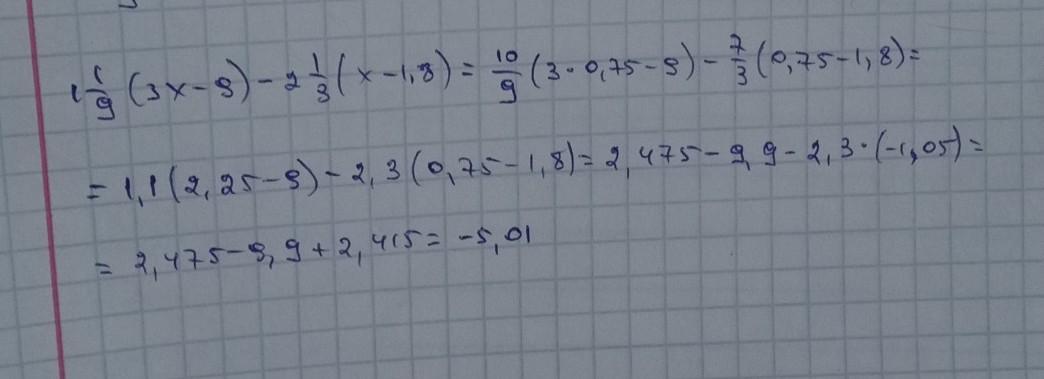 1 1/9 (3x-9)-2 1/3 (x-1,8)= 10/9 (3·0,75-9)- 7/3 (0,75-1,8)=
=1,1(2,25-9)-2,3(0,75-1,8)=2,475-9,9-2,3·(-1,05)=
=2,475-9,9+2,415=-5,01